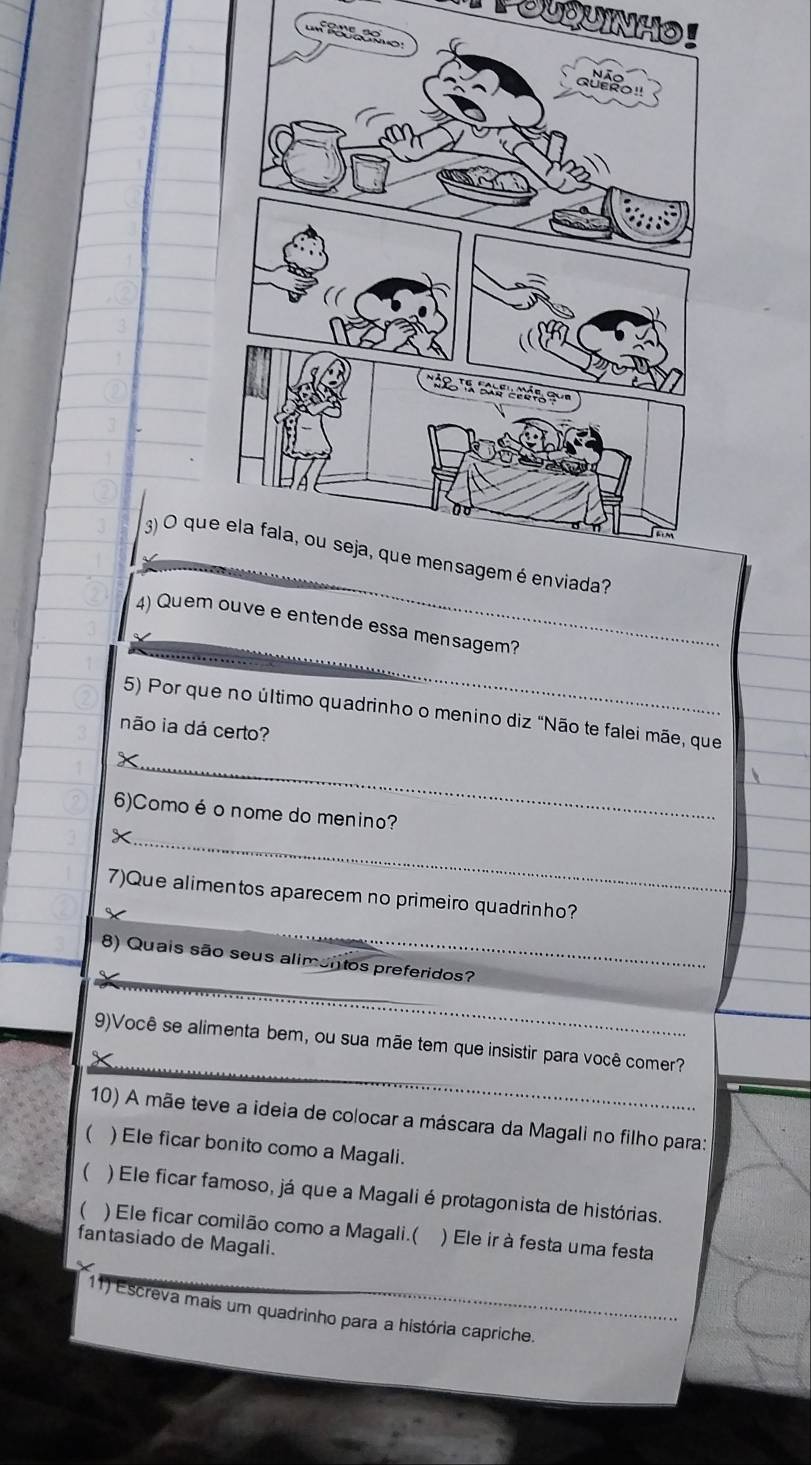 POUQUINHO!
COME SÓ
UM POUQUINHO!
NÃO
QUERO!!
NÃO TE FALEI, MÃE, QUE
NÃO IA DAR CERTO?
FIM
3) O que ela fala, ou seja, que mensagem é enviada?
4) Quem ouve e entende essa mensagem?
5) Por que no último quadrinho o menino diz "Não te falei mãe, que
não ia dá certo?
6)Como é o nome do menino?
7)Que alimentos aparecem no primeiro quadrinho?
8) Quais são seus alimentos preferidos?
9)Você se alimenta bem, ou sua mãe tem que insistir para você comer?
10) A mãe teve a ideia de colocar a máscara da Magali no filho para:
( ) Ele ficar bonito como a Magali.
( ) Ele ficar famoso, já que a Magali é protagonista de histórias.
( ) Ele ficar comilão como a Magali.( ) Ele ir à festa uma festa
fantasiado de Magali.
11) Escreva mais um quadrinho para a história capriche.